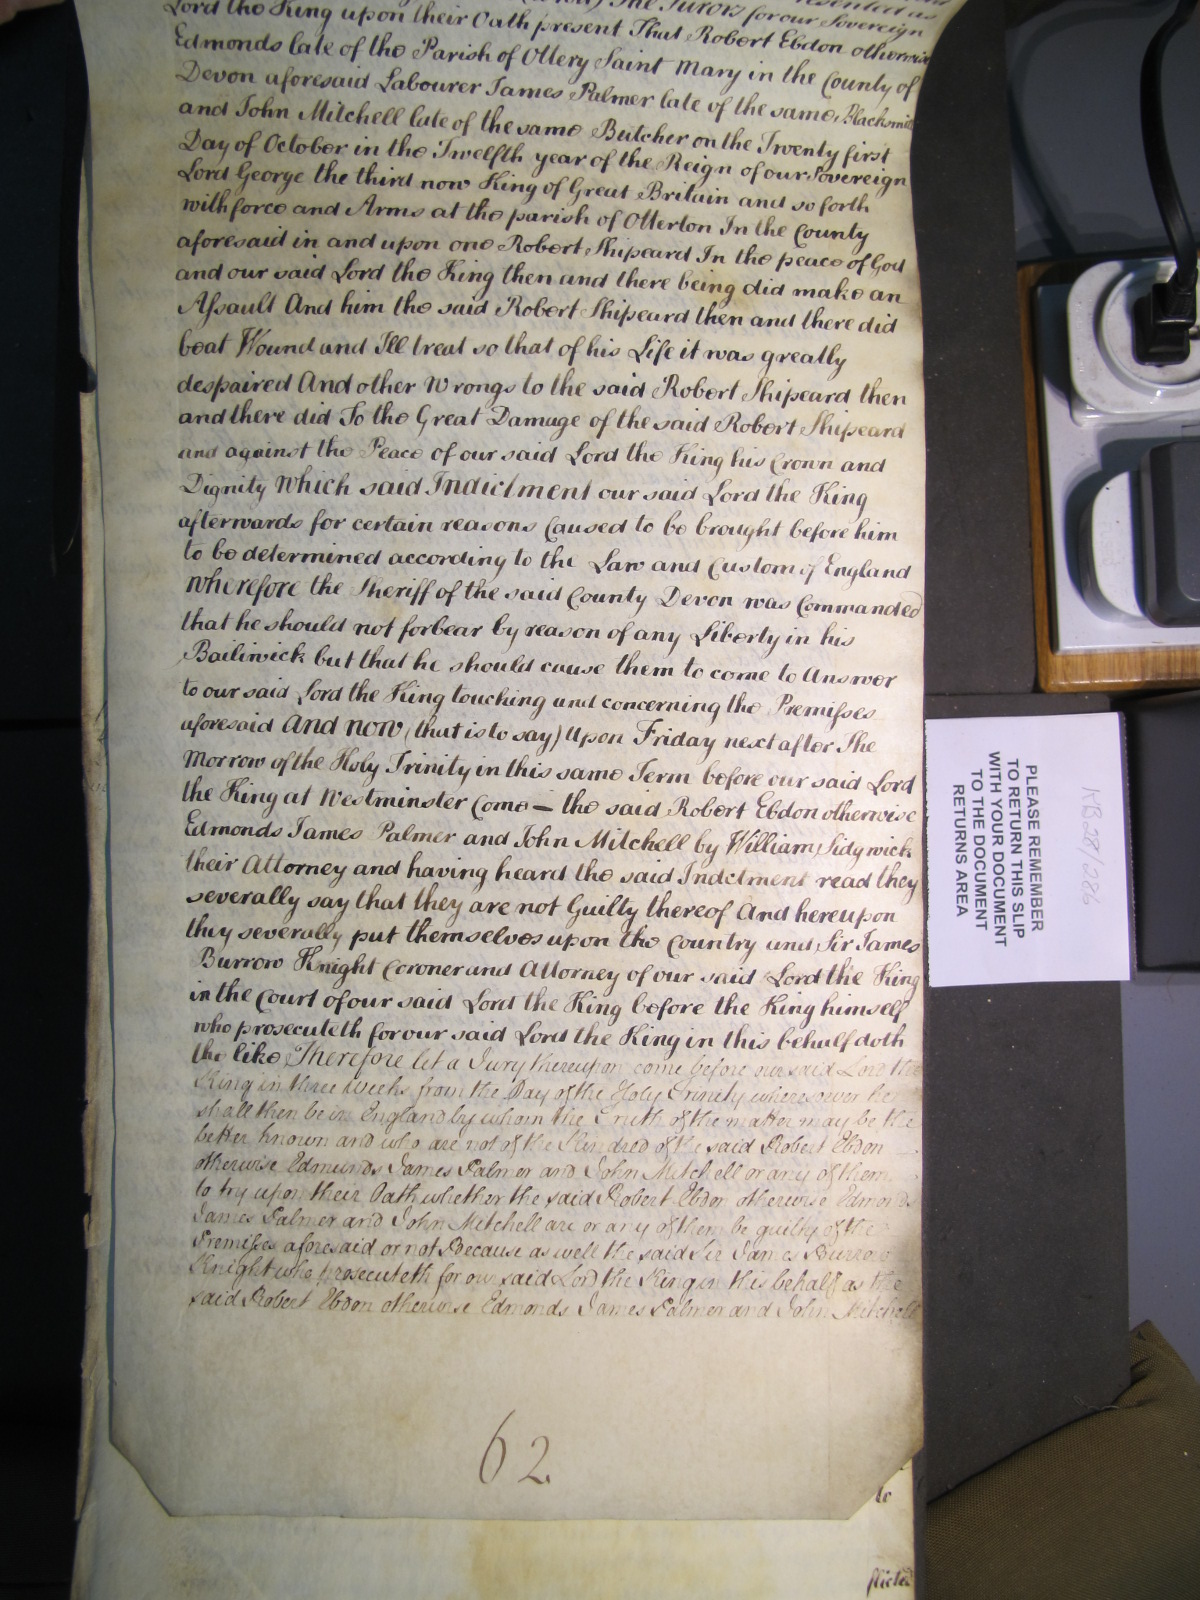 The Jurors for our Sovereign
Lord the King upon their Oath present That Robert Ebdon otherwise
Edmonds late of the Parish of Ottery Saint Mary in the County of
Devon aforesaid Labourer James Palmer late of the same Blacksmith
and John Mitchell late of the same Butcher on the Twenty first
Day of October in the Twelfth year of the Reign of our Sovereign
Lord George the third now King of Great Britain and so forth
with force and Arms at the parish of Otterton In the County
aforesaid in and upon one Robert Shipeard In the peace of God
and our said Lord the King then and there being did make an
Assault And him the said Robert Shipeard then and there did
beat Wound and Ill treat so that of his Life it was greatly
despaired And other Wrongs to the said Robert Shipeard then
and there did To the Great Damage of the said Robert Shipeard
and against the Peace of our said Lord the King his Crown and
Dignity Which said Indictment our said Lord the King
afterwards for certain reasons Caused to be brought before him
to be determined according to the Law and Custom of England
Wherefore the Sheriff of the said County Devon was Commanded
that he should not forbear by reason of any Liberty in his
Bailiwick but that he should cause them to come to Answer
to our said Lord the King touching and concerning the Premisses
aforesaid And now (that is to say) Upon Friday next after The
Morrow of the Holy Trinity in this same Term before our said Lord
the King at Westminster Come – the said Robert Ebdon otherwise
Edmonds James Palmer and John Mitchell by William Sidgwick
their Attorney and having heard the said Indctment read they
severally say that they are not Guilty thereof And hereupon
they severally put themselves upon the Country and Sir James
Burrow Knight Coroner and Attorney of our said Lord the King
in the Court of our said Lord the King before the King himself
who prosecuteth for our said Lord the King in this behalf doth
the like Therefore let a Jury thereupon come before our said Lord the
King in three Weeks from the Day of the Holy Trinity wheresoever he
shall then be in England by whom the Truth of the matter may be the
better known and who are not of the Kindred of the said Robert Ebdon
otherwise Edmunds James Palmer and John Mitchell or any of them
to try upon their Oath whether the said Robert Ebdon otherwise Edmonds
James Palmer and John Mitchell are or any of them be guilty of the
Premisses aforesaid or not Because as well the said Sir James Burrow
Knight who prosecuteth for our said Lord the King in this behalf as the
said Robert Ebdon otherwise Edmonds James Palmer and John Mitchell
62
PLEASE REMEMBER
TO RETURN THIS SLIP
WITH YOUR DOCUMENT
TO THE DOCUMENT
RETURNS AREA
KB 28/286